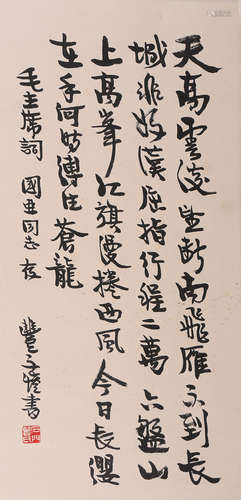 天高雲淡望斷南飛雁不到長
城非好漢屈指行程二萬六盤山
上高峯紅旗漫捲西風今日長纓
在手何時縛住蒼龍
毛主席詞 國同志
豐子愷書